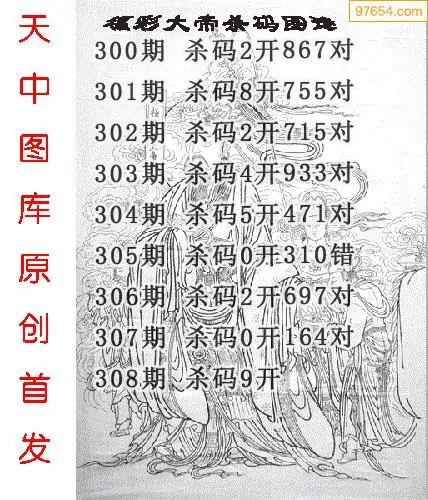 97654.com
福彩大帝杀码图迷
300期 杀码2开867对
301期 杀码8开755对
302期 杀码2开715对
303期 杀码4开933对
304期 杀码5开471对
305期 杀码0开310错
306期 杀码2开697对
307期 杀码0开164对
308期 杀码9开
天中图库原创首发